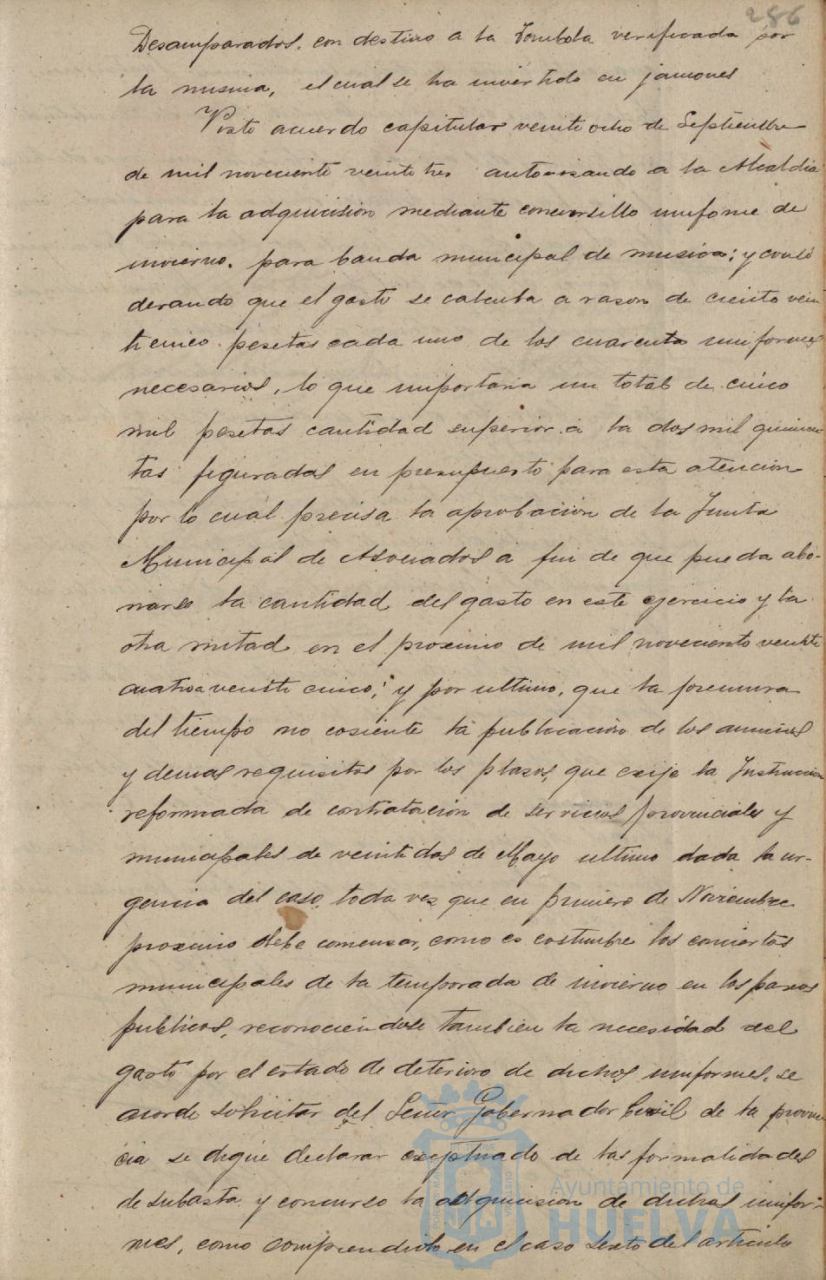 286
Desamparados, con destino a la Tombola verificada por
la misma, el cual se ha invertido en jamones
Visto acuerdo capitular veintiocho de Septiembre
de mil noveciento veintitres autorisando a la Alcaldia
para la adquicision mediante concursillo uniforme de
invierno, para banda municipal de musica; y consi
derando que el gasto se calcula a rason de ciento vein
ticinco pesetas cada uno de los cuarenta uniformes
necesarios, lo que importaria un total de cinco
mil pesetas cantidad superior a la dos mil quinien
tas figuradas en presupuesto para esta atencion
por lo cual precisa la aprobacion de la Junta
Municipal de Asociados a fin de que pueda abo-
narse la cantidad del gasto en este ejercicio y la
otra mitad en el proximo de mil noveciento veinte
cuatro a veinte cinco; y por ultimo, que la premura
del tiempo no cosiente la publicacion de los anuncios
y demas requisitos por los plasos, que exije la Instruccion
reformada de contratacion de servicios provinciales y
municipales de veintidos de Mayo ultimo dada la ur-
gencia del caso, toda vez que en primero de Noviembre
proximo debe comensar, como es costumbre los conciertos
municipales de la temporada de invierno en los paseos
publicos, reconociendose tambien la necesidad del
gasto por el estado de deterioro de dichos uniformes, se
acorde solicitar del Señor Gobernador Civil de la provin
cia se digne declarar exeptuado de las formalidades
de subasta y concurso la adquicision de dichos unifor-
mes, como comprendido en el caso sexto del articulo
Ayuntamiento de
HUELVA